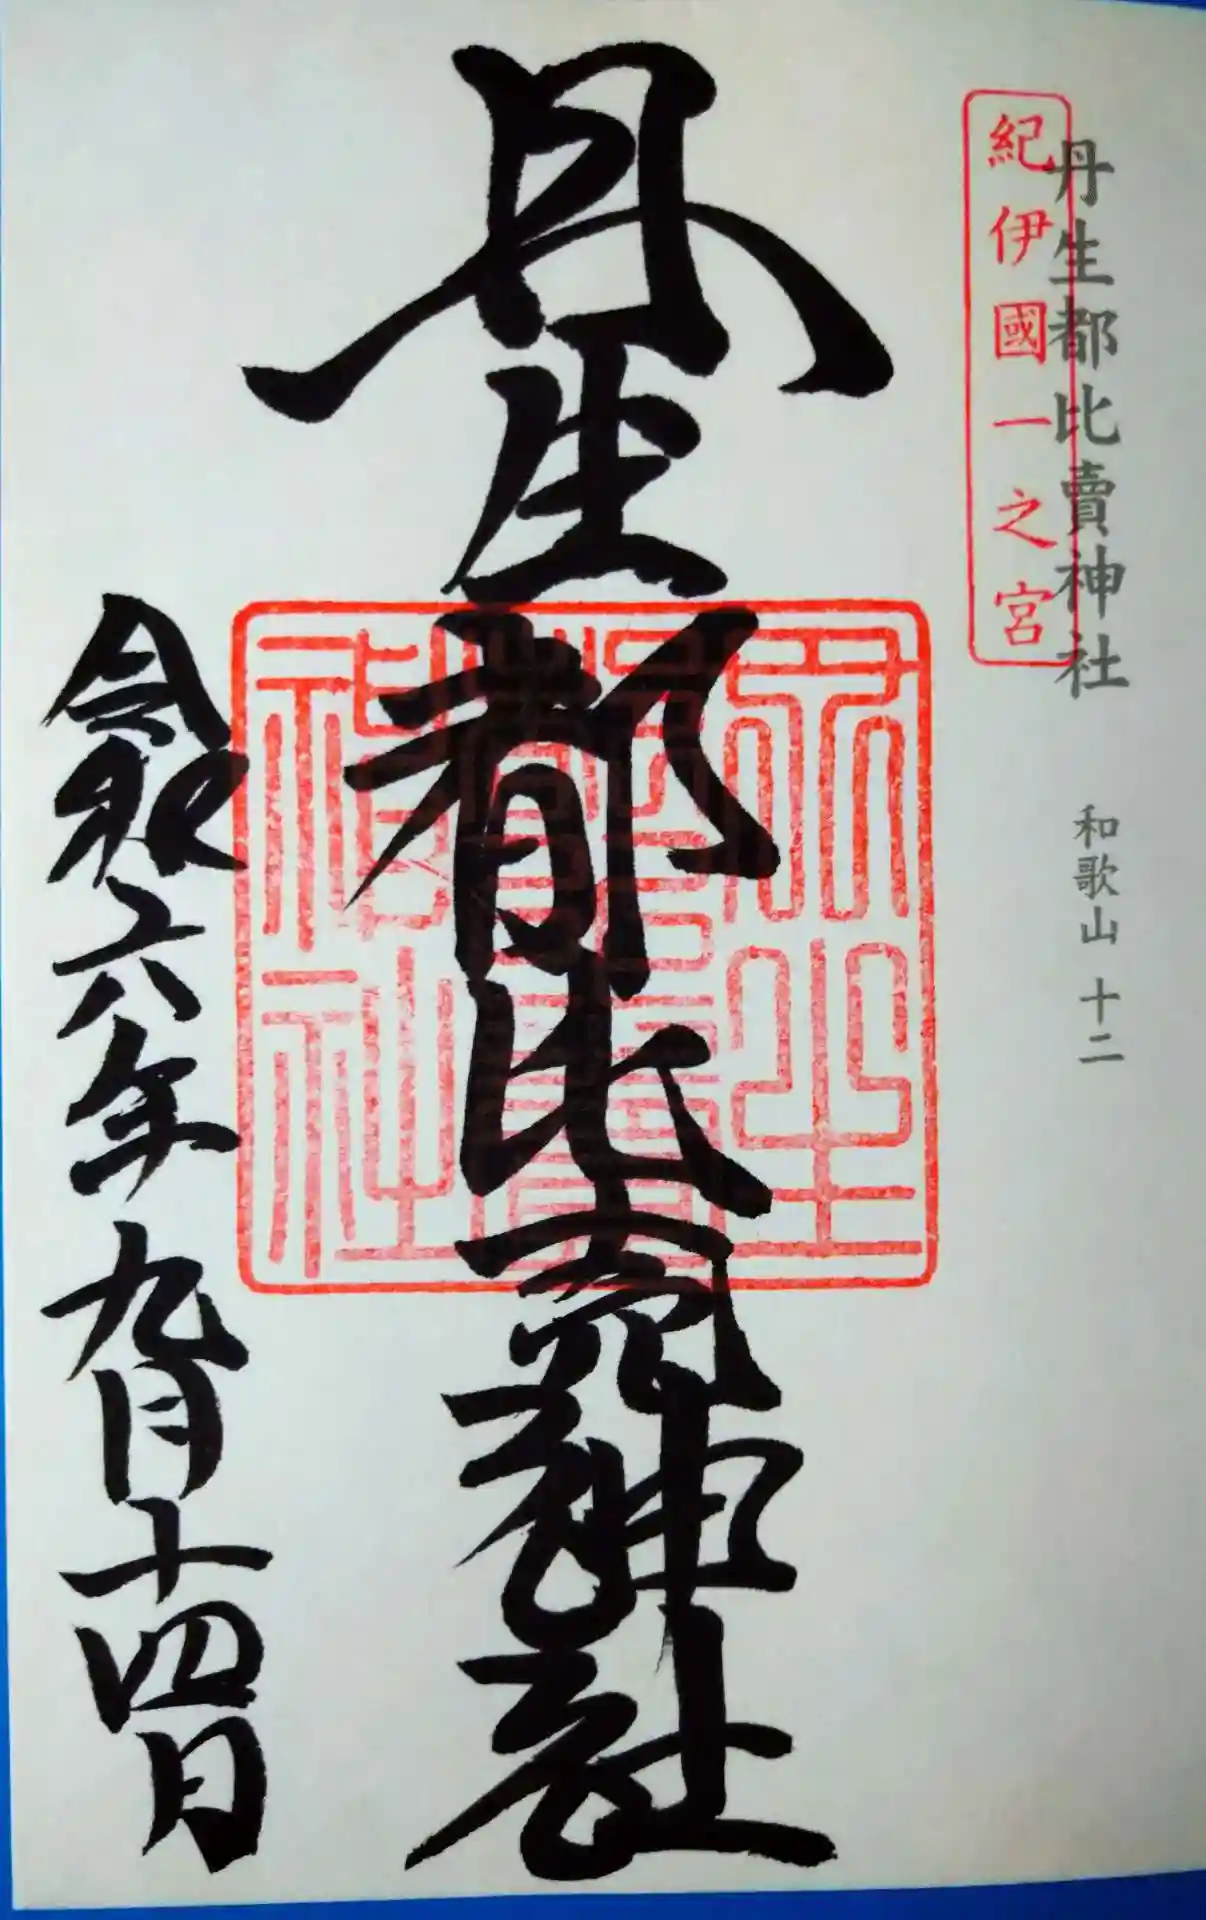 丹生都比賣神社 和歌山 十二
紀伊國一之宮
丹生都比売神社
令和六年九月十四日